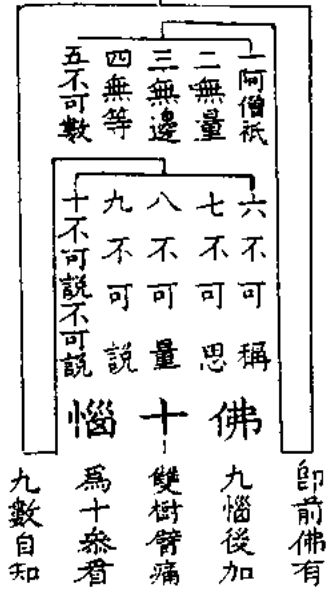 一阿僧祇
二無量
三無邊
四無等
五不可數
六不可稱
七不可思
八不可量
九不可説
十不可説不可説
佛十惱
即前佛有
九惱後加
雙樹臂痛
爲十參看
九數自知